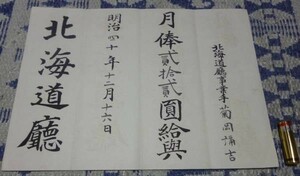 北海道廳事業手菊岡清吉
月俸貳拾貳圓給與
明治四十年十二月十六日
北海道廳